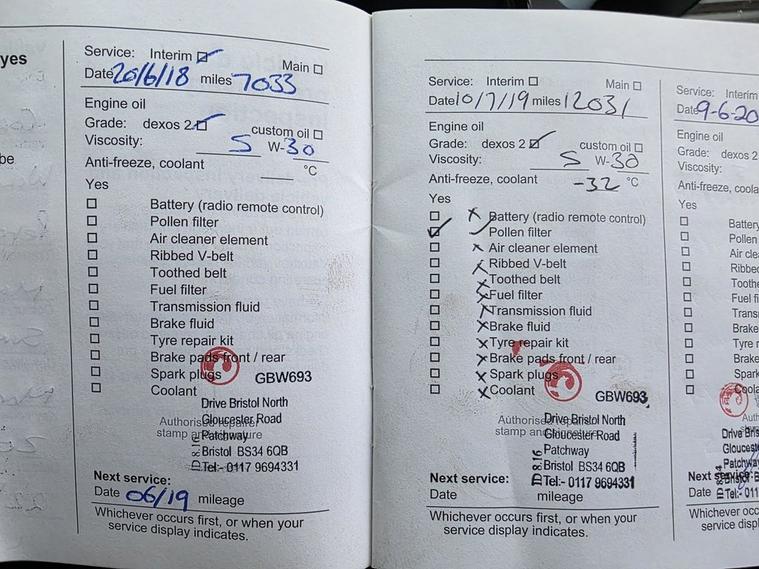 yes
be
Service: Interim Main
Date 20/6/18 miles 7033
Engine oil
Grade: dexos 2 custom oil
Viscosity: 5 W-30
Anti-freeze, coolant °C
Yes
Battery (radio remote control)
Pollen filter
Air cleaner element
Ribbed V-belt
Toothed belt
Fuel filter
Transmission fluid
Brake fluid
Tyre repair kit
Brake pads front / rear
Spark plugs GBW693
Coolant
Drive Bristol North
Authorised repairer
Gloucester Road
stamp and signature
Patchway
Bristol BS34 6QB
Tel:- 0117 9694331
Next service:
Date 06/19 mileage
Whichever occurs first, or when your
service display indicates.
Service: Interim Main
Date 10/7/19 miles 12031
Engine oil
Grade: dexos 2 custom oil
Viscosity: 5 W-30
Anti-freeze, coolant -32 °C
Yes
Battery (radio remote control)
Pollen filter
Air cleaner element
Ribbed V-belt
Toothed belt
Fuel filter
Transmission fluid
Brake fluid
Tyre repair kit
Brake pads front / rear
Spark plugs
Coolant GBW693
Drive Bristol North
Authorised repairer
Gloucester Road
stamp and
Patchway
Bristol BS34 6QB
Tel:- 0117 9694331
Next service:
Date mileage
Whichever occurs first, or when your
service display indicates.
Service: Interim
Date 9-6-20
Engine oil
Grade: dexos 2
Viscosity:
Anti-freeze, coola
Yes
Battery
Pollen
Air cle
Ribbed
Toothe
Fuel fi
Trans
Brake
Tyre r
Brake
Spark
Coola
Drive Bris
Gloucest
Patchway
Next se
Date Tel:- 01
Whichever oc
service disp